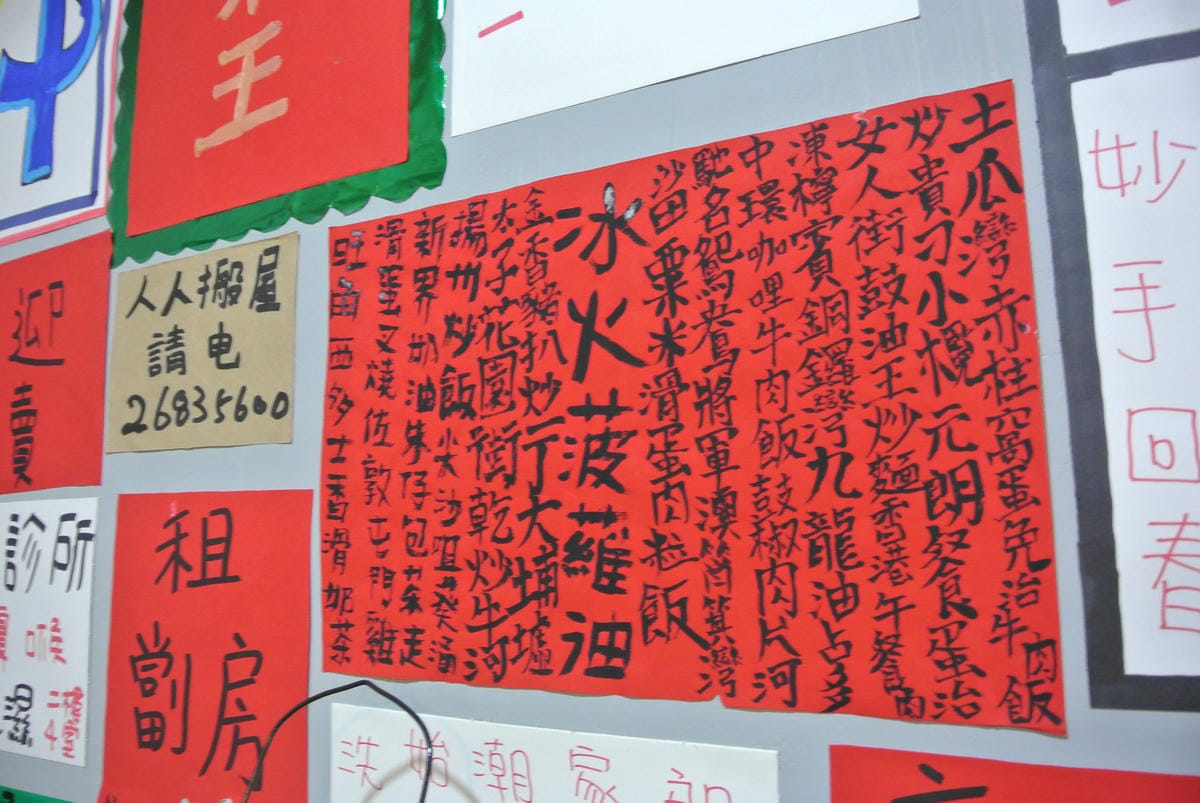 王
人人搬屋
請电
26835600
迎
賣
診所
租
劏房
土瓜灣赤柱窩蛋免治牛肉飯
炒貴刁小欖元朗餐蛋治
女人街鼓油王炒麵香港午餐肉
凍檸賓銅鑼灣九龍油占多
中環咖哩牛肉飯鼓椒肉片河
馳名鴛鴦將軍澳筲箕灣
沙田粟米滑蛋肉粒飯
冰火菠蘿油
金香豬扒炒行大埔墟
太子花園街乾炒牛河
揚州炒飯尖沙咀葵涌
新界奶油朱仔包茶走
滑蛋叉燒佐敦屯門雞
旺角西多士香滑奶茶
妙手回春